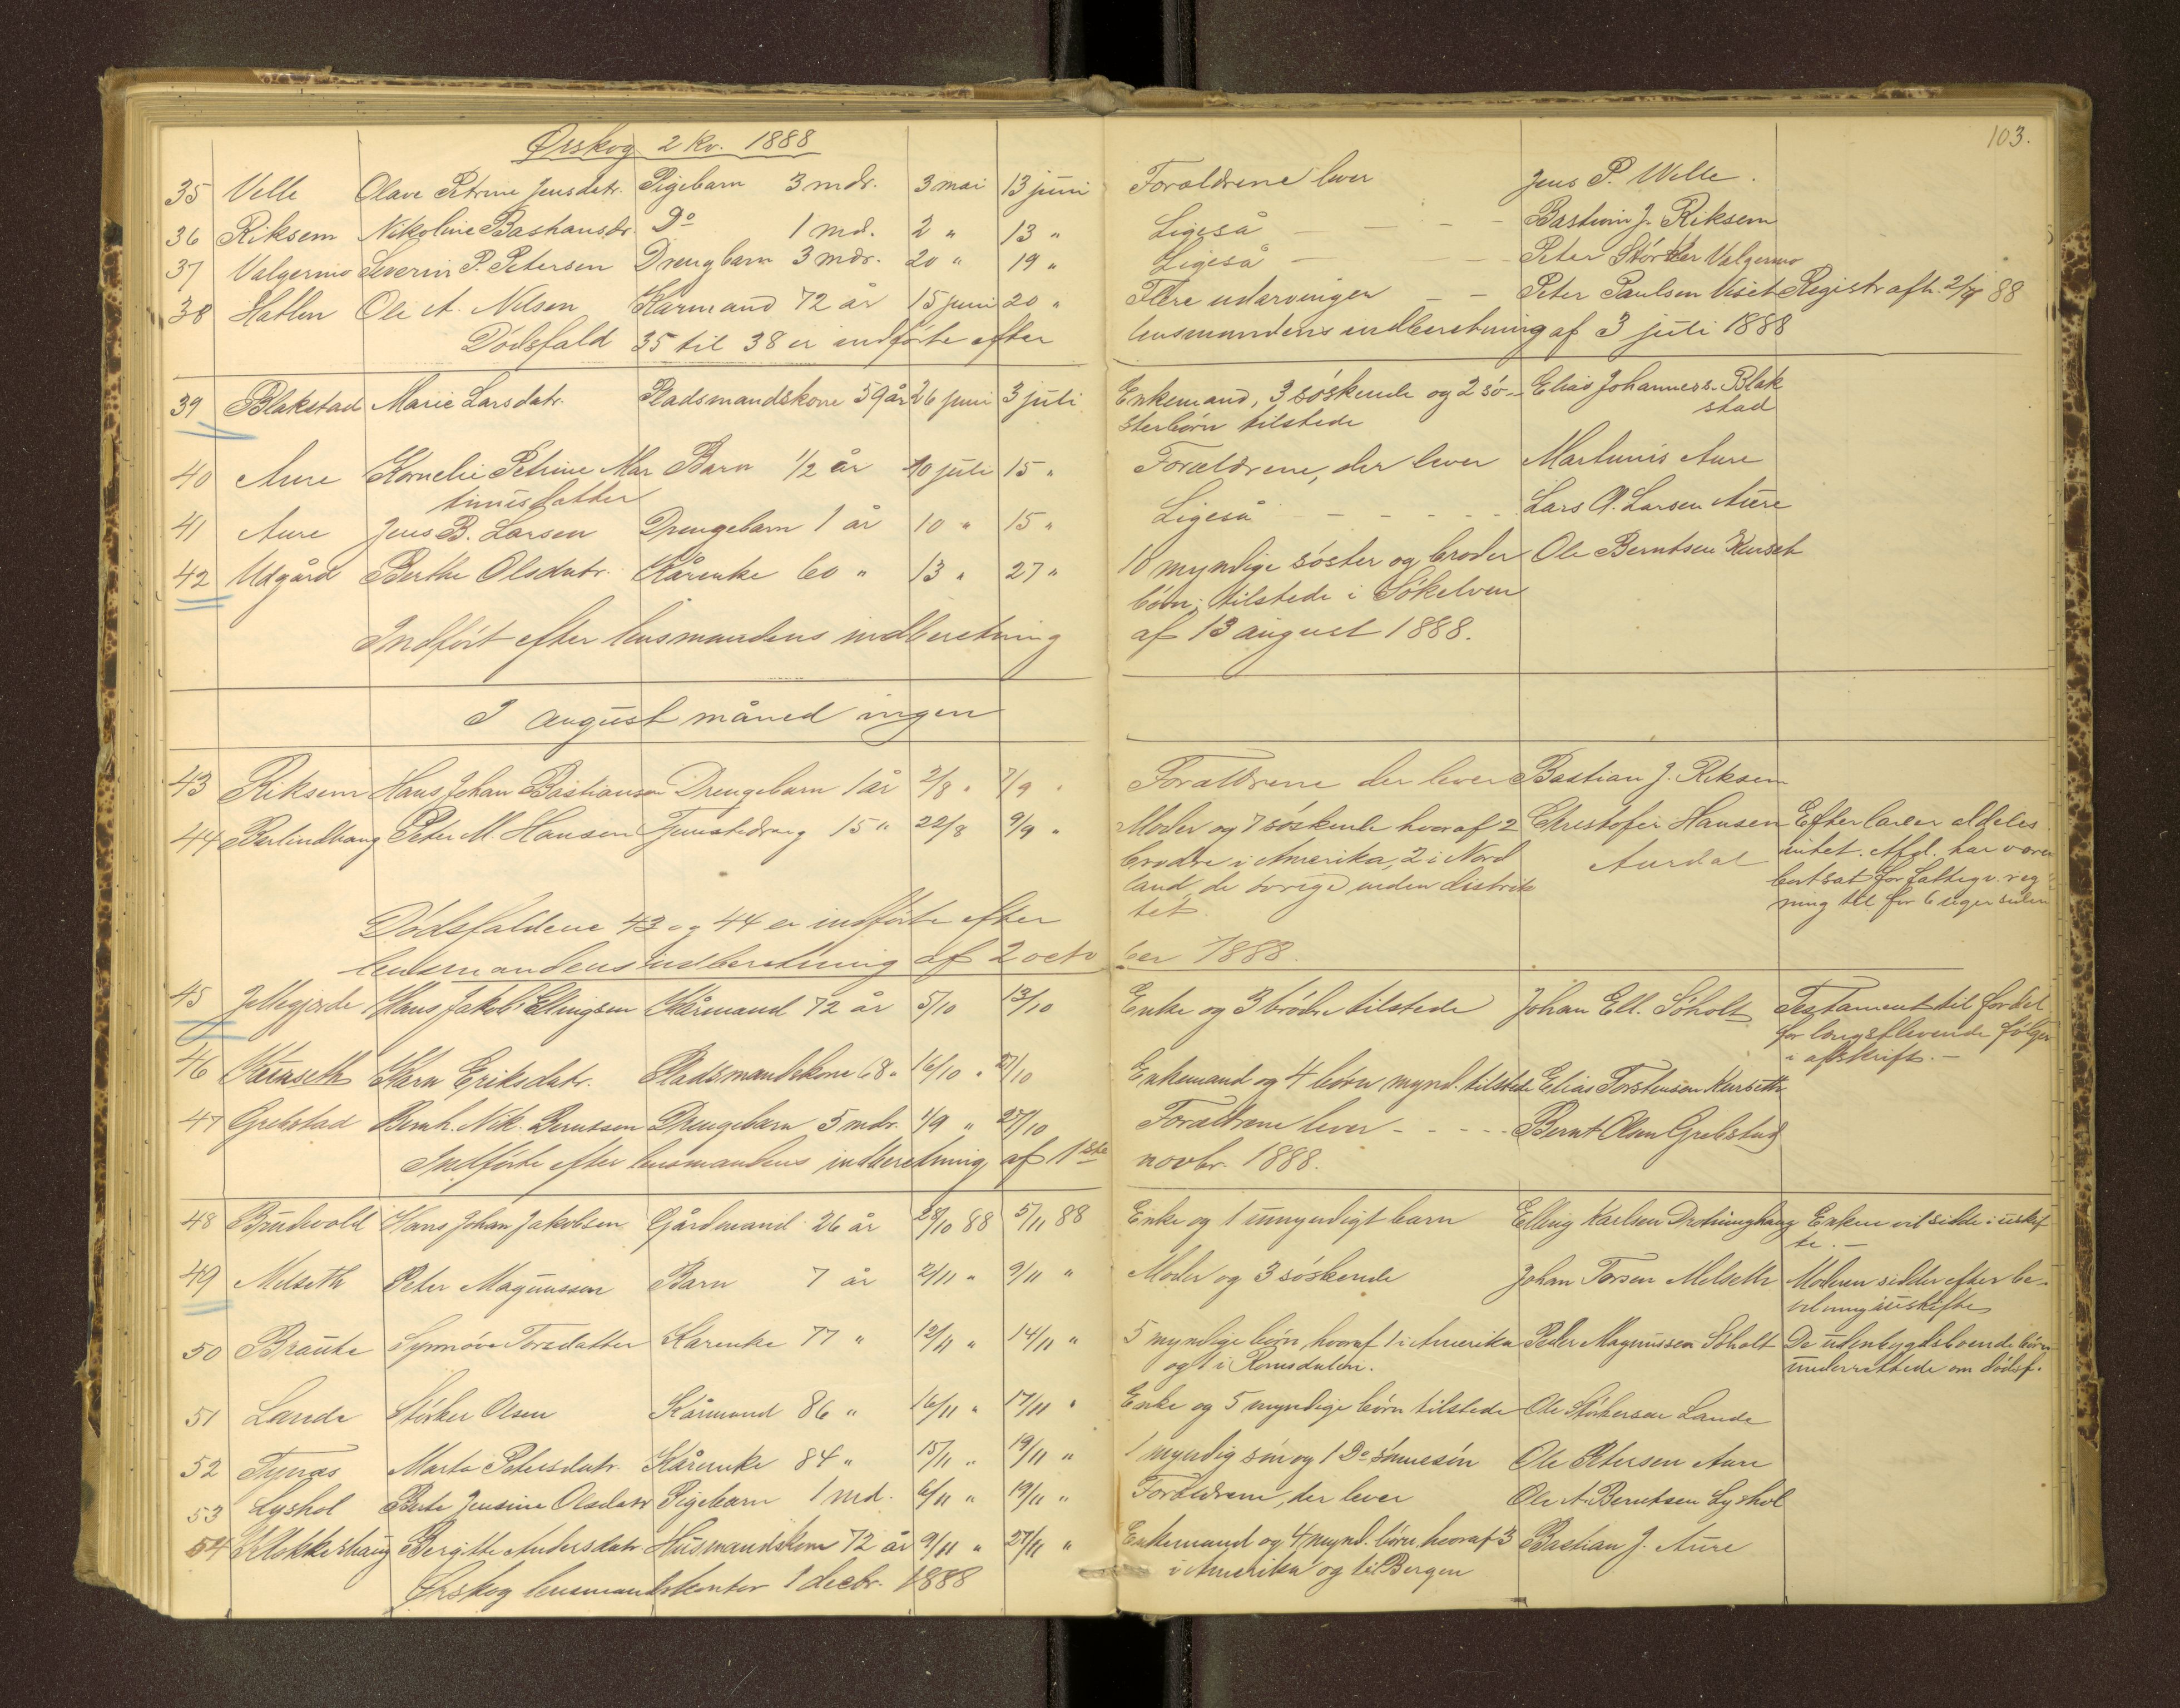 103.
Ørskog 2 kv. 1888
35 Velle Olave Petrine Jensdatr. Pigebarn 3 mdr. 3 mai 13 juni Forældrene lever Jens P. Welle.
36 Riksem Nikoline Bastiansdr. Do 1 md. 2 " 13 " Ligeså — — — Bastian J. Riksem
37 Valgermo Severin P. Petersen Drengbarn 3 mdr. 20 " 19 " Ligeså — — Peter Størker Valgermo
38 Hatlen Ole A. Nilsen Kårmand 72 år 15 juni 20 " Flere udarvinger — — Peter Paulsen Viset Registr. afh. 88
Dödsfald 35 til 38 er indförte efter lensmandens indberetning af 3 juli 1888
39 Blakstad Marie Larsdatr. Pladsmandskone 59 år 26 juni 3 juli Enkemand, 3 söskende og 2 sö- Elias Johanness. Blak
sterbörn tilstede stad
40 Aure Kornelie Petrine Mar Barn 1/2 år 10 juli 15 " Forældrene, der lever Martinus Aure
tinusdatter
41 Aure Jens B. Larsen Drengebarn 1 år 10 " 15 " Ligeså — — — — Lars A. Larsen Aure
42 Udgård Berthe Olsdatr. Kårenke 60 " 13 " 27 " 10 myndige söster og broder Ole Berntsen Kurset
börn; tilstede i Sökelven
Indfört efter lensmandens indberetning af 13 august 1888.
I august måned ingen
43 Riksem Hans Johan Bastiansen Drengebarn 1 år 2/8 " 7/9 " Forældrene der lever Bastian J. Riksem
44 Peter M. Hansen Tjenstedreng 15 " 22/8 9/9 " Moder og 7 söskende hvoraf 2 Christofer Hansen Efterlader aldeles
brödre i Amerika, 2 i Nord Aurdal intet. Afd. har været
land, de övrige inden distrik bortsat for fattigv. reg
tet. ning til for 6 uger siden
Dödsfaldene 43 og 44 er indförte efter
lensmandens indberetning af 2 octo ber 1888.
45 Jellegjerde Hans Jakob Ellingsen Kårmand 72 år 5/10 13/10 Enke og 3 brödre tilstede Johan Ell. Söholt Testament til fordel
for længstlevende fölger
i afskrift. —
46 Kurseth Karn Eriksdatr. Pladsmandskone 68 " 16/10 " 27/10 Enkemand og 4 börn mynd. tilstede Elias Torstensen Kurseth
47 Grebstad Bernh. Nik. Berntsen Drengebarn 5 mdr. 1/9 " 27/10 Forældrene lever - - - - - Bernt Olsen Grebstad
Indförte efter lensmandens indberetning af 1ste novbr. 1888.
48 Brudevold Hans Johan Jakobsen Gårdmand 26 år 28/10 88 5/11 88 Enke og 1 umyndigt barn Elling Karlsen Drotninghaug Enken vil sidde i uskif
te. —
49 Melseth Peter Magnussen Barn 7 år 2/11 " 9/11 " Moder og 3 söskende Johan Torsen Melseth Moderen sidder efter be-
vilning i uskifte
50 Braute Synnöve Torsdatter Kårenke 77 " 12/11 " 14/11 " 5 myndige börn, hvoraf 1 i Amerika Peder Magnussen Söholt De udenbygdsboende börn
og 1 i Romsdalen. underrettede om dödsf.
51 Lande Störker Olsen Kårmand 86 " 16/11 " 17/11 " Enke og 5 myndige börn tilstede Ole Störkersen Lande
52 Tynæs Marta Petersdatr. Kårenke 84 " 15/11 " 19/11 " 1 myndig sön og 1 Do sönnesön Ole Petersen Aure
53 Lyshol Berte Jensine Olsdatr Pigebarn 1 md. 6/11 " 19/11 " Forældrene, der lever Ole A. Berntsen Lyshol
54 Klokkerhaug Bergitte Andersdatr. Husmandskone 72 år 9/11 " 27/11 " Enkemand og 4 mynd. börn hvoraf 3 Bastian J. Aure
i Amerika og 1 i Bergen
Ørskog lensmandskontor 1 decbr. 1888